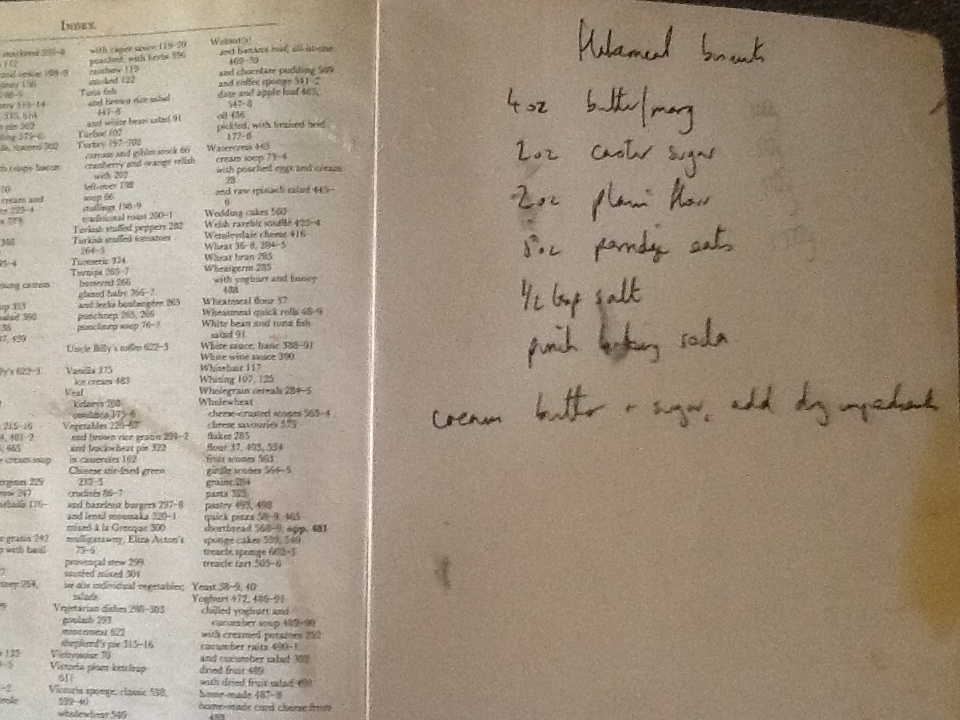 INDEX
with caper sauce 119-20
poached, with herbs
rainbow 119
smoked 122
Tuna fish
and brown rice salad
447-8
and white bean salad 91
Turbot 107
Turkey 197-202
carcass and giblet stock 66
cranberry and orange relish
with 202
left-over 198
soup 66
stuffings 198-9
traditional roast 200-1
Turkish stuffed peppers 282
Turkish stuffed tomatoes
264-5
Turmeric 324
Turnips 265-7
buttered 266
glazed baby 266-7
and leeks boulangère 265
punchnep 265, 266
punchnep soup 76-7
Uncle Billy's toffee 622-3
Vanilla 375
ice cream 483
Veal
kidneys 208
Vegetables
and brown rice gratin 291-2
and buckwheat pie 322
in casseroles 162
Chinese stir-fried green
232-3
crudités 86-7
and hazelnut burgers 297-8
and lentil moussaka 320-1
mixed à la Grecque 300
mulligatawny, Eliza Acton's
75-6
provençal stew 299
sautéed mixed 301
see also individual vegetables;
salads
Vegetarian dishes 288-303
goulash 293
mincemeat 622
shepherd's pie 315-16
Vichyssoise 70
Victoria plum ketchup
611
Victoria sponge, classic 538,
539-40
wholewheat 540
Walnut(s)
and banana loaf, all-in-one
and chocolate pudding
and coffee sponge 541-2
date and apple loaf
547-8
oil 436
pickled, with braised beef
177-8
Watercress 443
cream soup 73-4
with poached eggs and cream
28
and raw spinach salad 445-
6
Wedding cakes 560
Welsh rarebit soufflé
Wensleydale cheese 416
Wheat 36-8, 284-5
Wheat bran 285
Wheatgerm 285
with yoghurt and honey
488
Wheatmeal flour 37
Wheatmeal quick rolls 48-9
White bean and tuna fish
salad 91
White sauce, basic 388-91
White wine sauce 390
Whitebait 117
Whiting 107, 125
Wholegrain cereals 284-5
Wholewheat
cheese-crusted scones 563-4
cheese savouries 573
flakes 285
flour 37, 493, 534
fruit scones 563
girdle scones 564-5
grains 284
pasta
pastry 493, 498
quick pizza 58-9, 465
shortbread 568-9, opp. 481
sponge cakes 539, 540
treacle sponge 602-3
treacle tart 505-6
Yeast 38-9, 40
Yoghurt 472, 486-91
chilled yoghurt and
cucumber soup 489-90
with creamed potatoes 252
cucumber raita 490-1
and cucumber salad
dried fruit 489
with dried fruit salad
home-made 487-8
home-made curd cheese from
Wholemeal biscuits
4 oz butter/marg
2 oz caster sugar
2 oz plain flour
8 oz porridge oats
1/2 tsp salt
pinch baking soda
cream butter + sugar, add dry ingredients